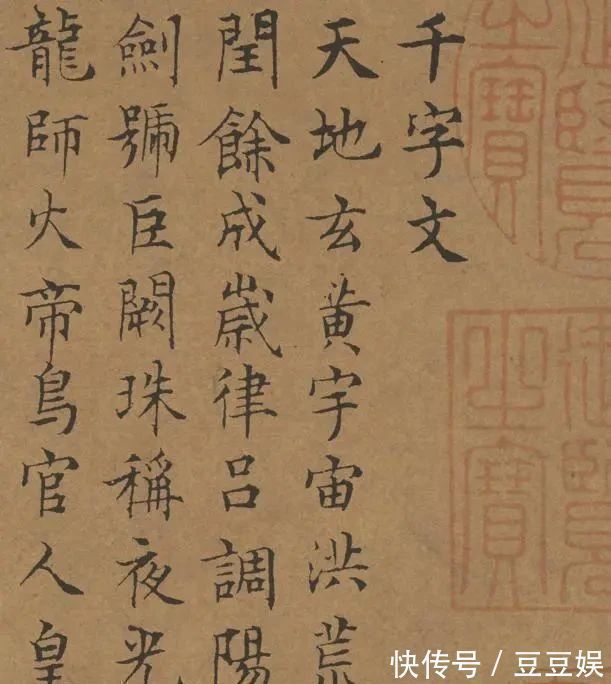 千字文
天地玄黄宇宙洪荒
閏餘成歲律呂調陽
劍號巨闕珠稱夜光
龍師火帝鳥官人皇
快传号 / 豆豆娱